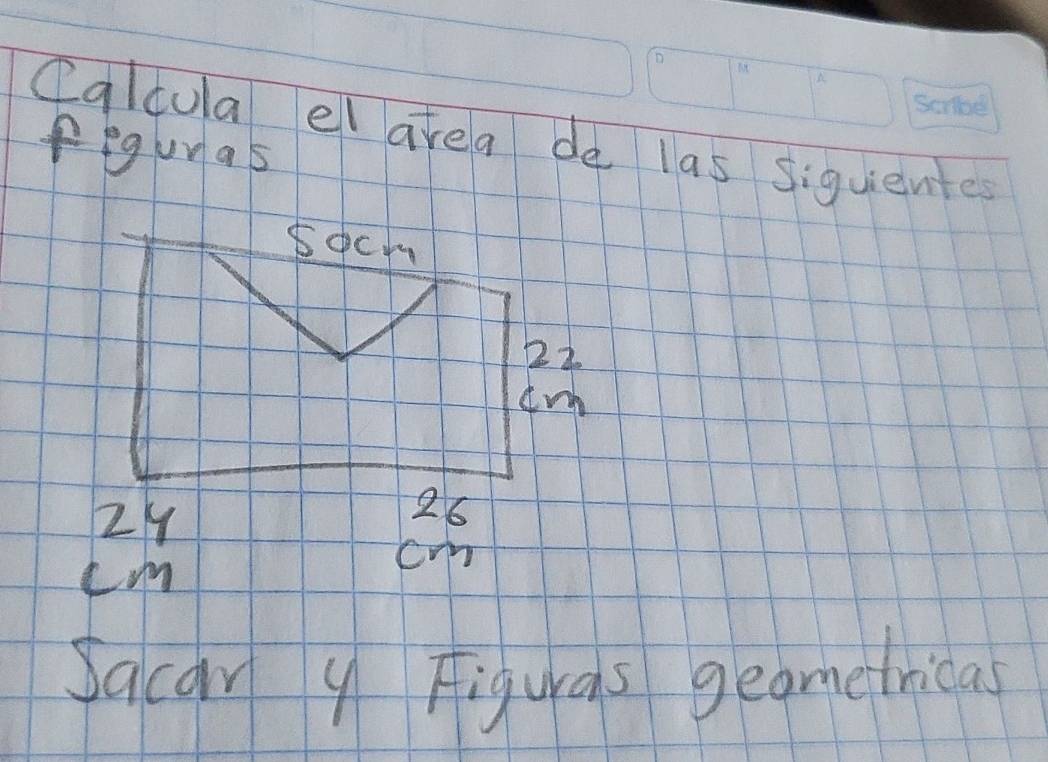 D M A Scribe
Calcula el area de las siguientes
figuras
50cm
22
cm
24
cm
26
cm
Sacar y Figuras geometricas